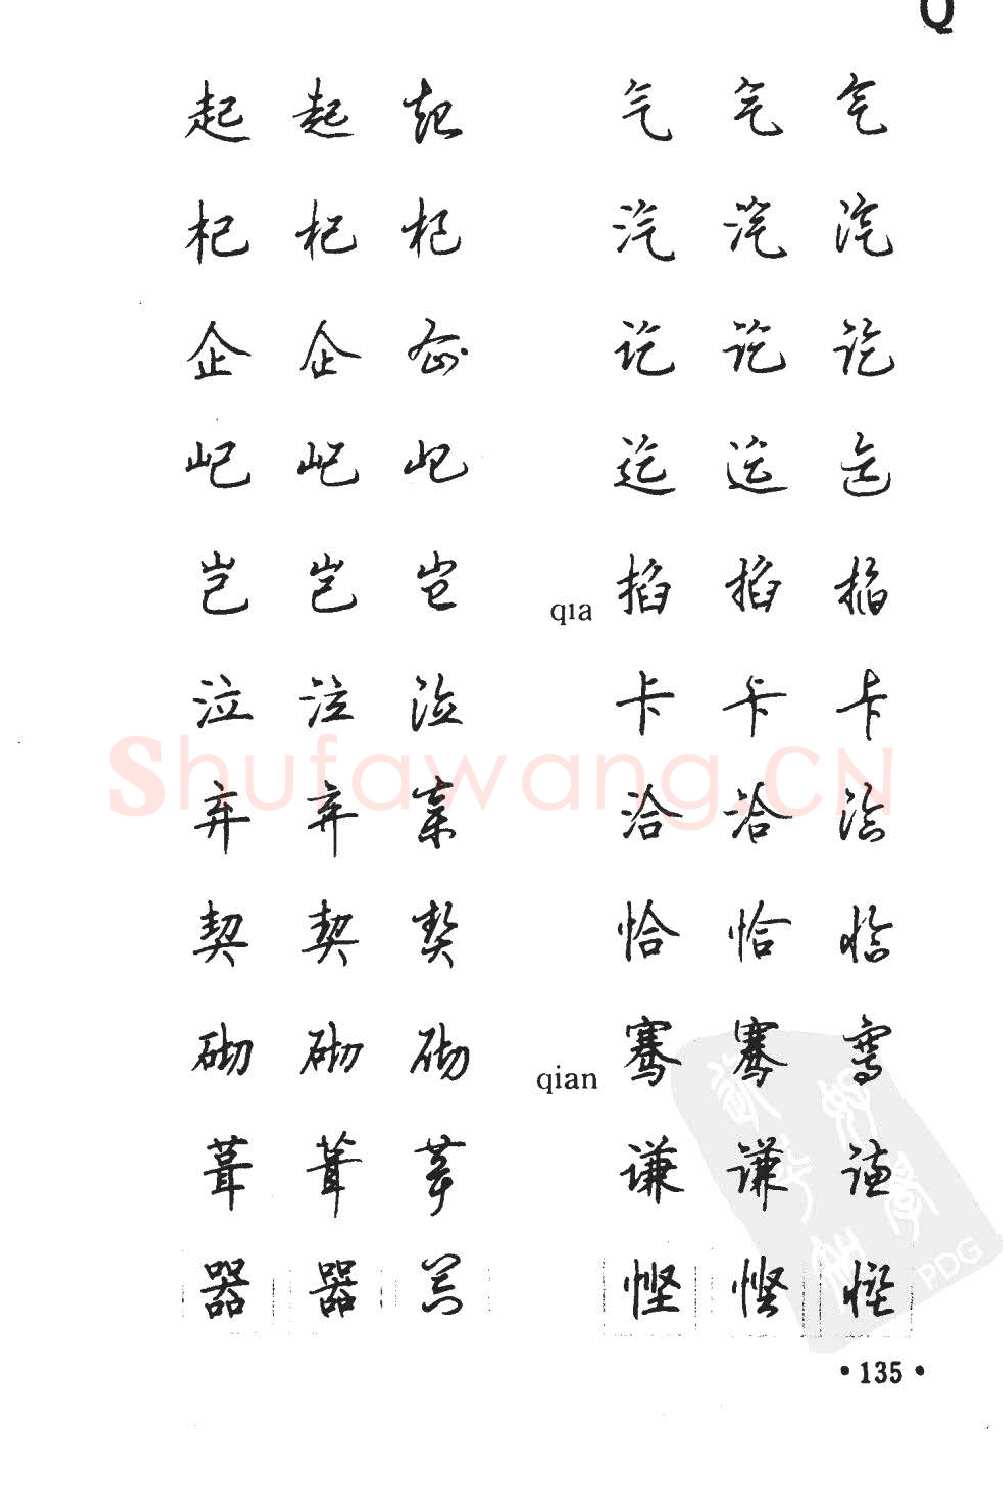 Q
起 起 起 气 气 气
杞 杞 杞 汽 汽 汽
企 企 企 讫 讫 讫
屺 屺 屺 迄 迄 迄
岂 岂 岂 qia 掐 掐 掐
泣 泣 泣 卡 卡 卡
Shufawang.CN
弃 弃 弃 洽 洽 洽
契 契 契 恰 恰 恰
砌 砌 砌 qian 骞 骞 骞
葺 葺 葺 谦 谦 谦
器 器 器 悭 悭 悭
PDG
• 135 •